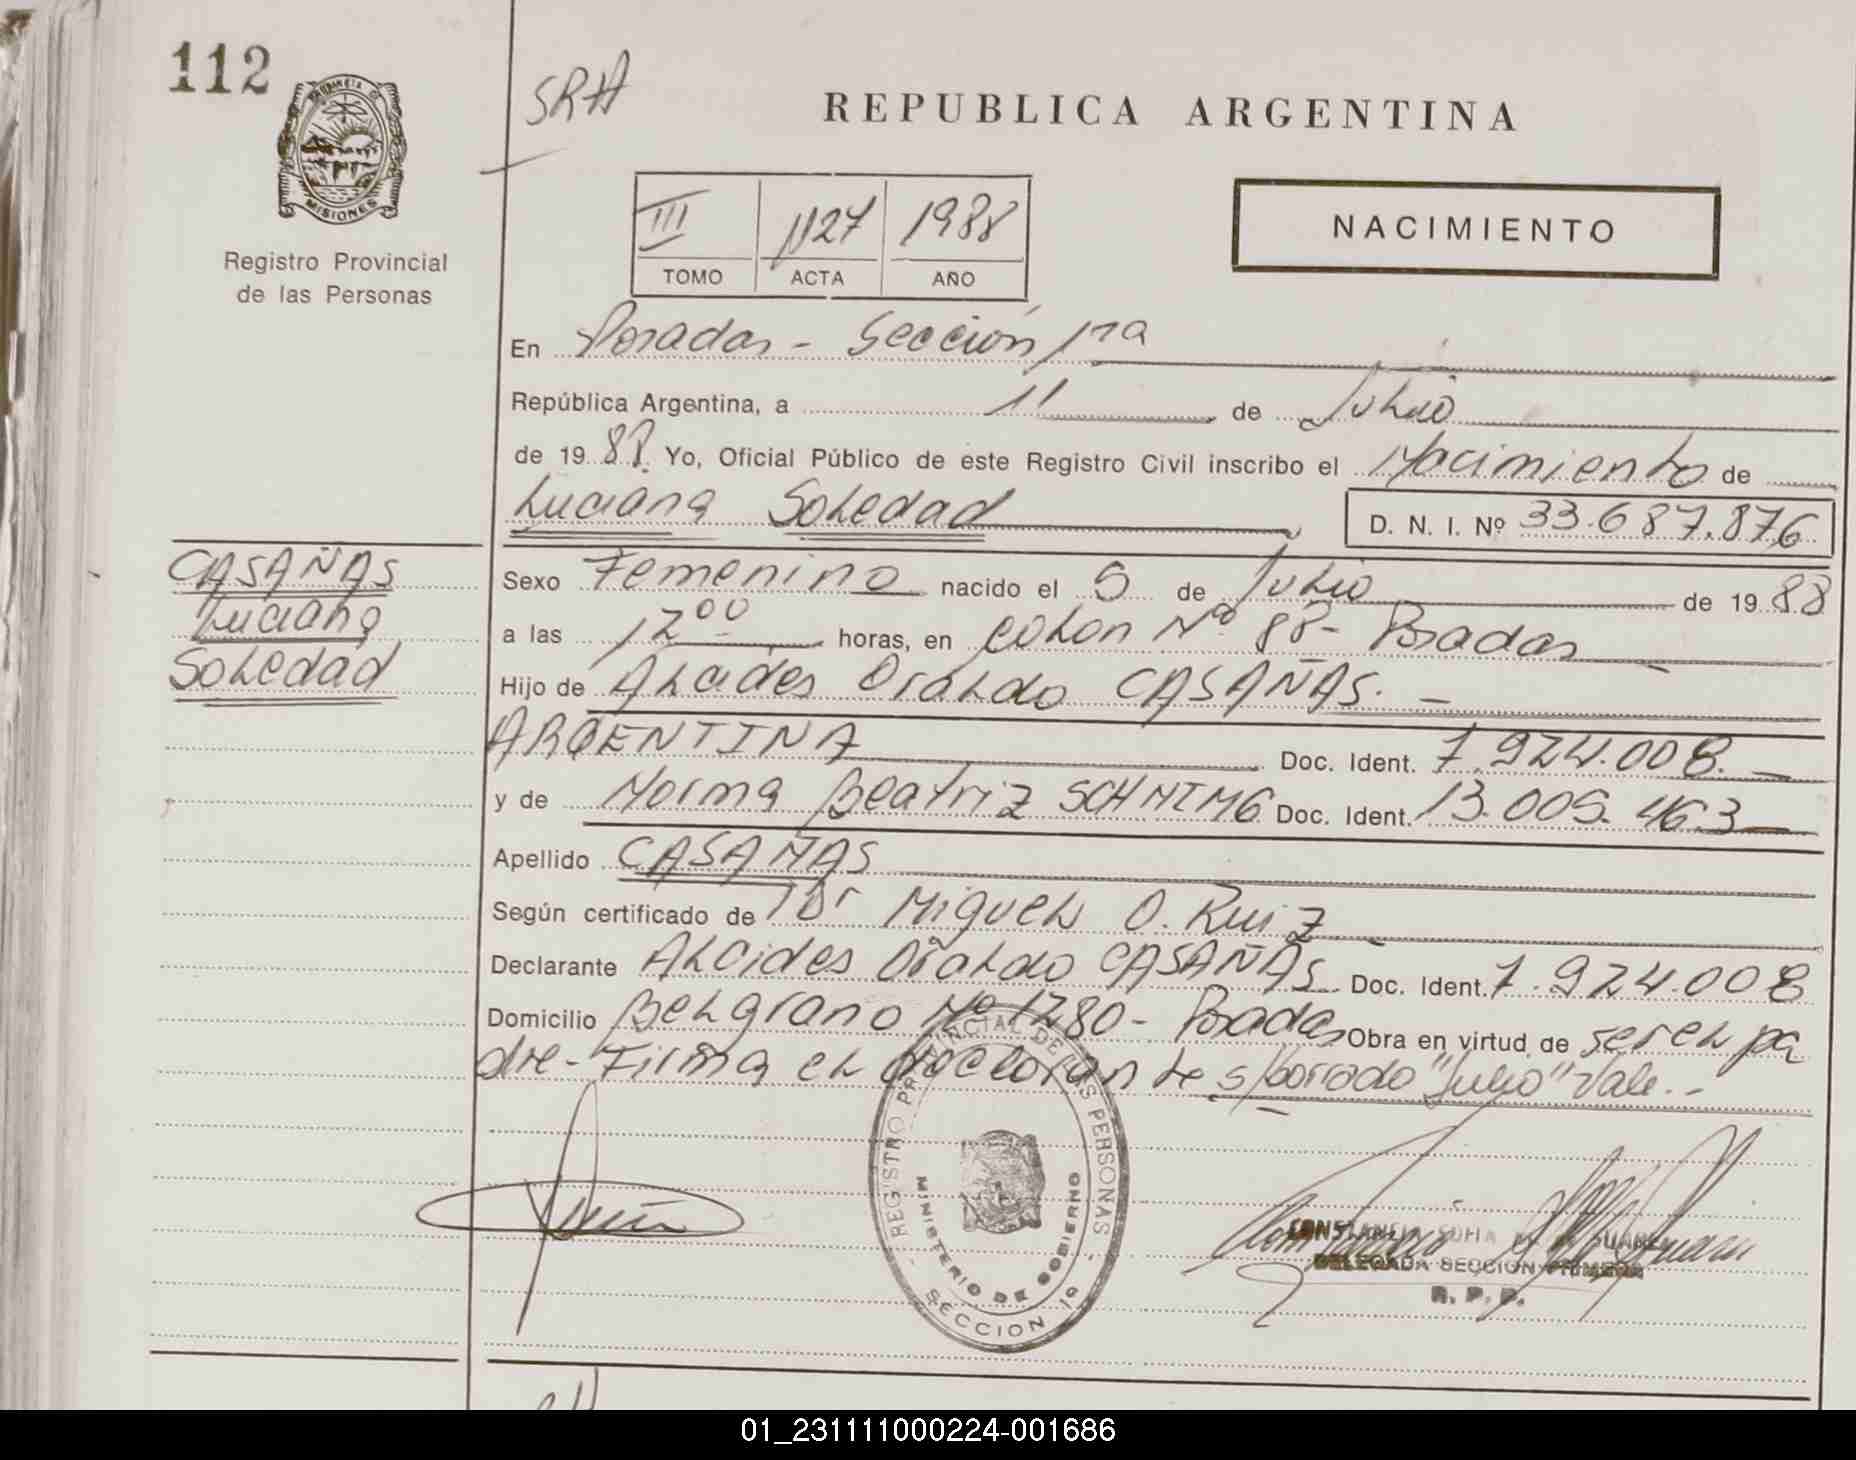 112
SRH
REPUBLICA ARGENTINA
PROVINCIA DE
MISIONES
Registro Provincial
de las Personas
III 1127 1988
TOMO ACTA AÑO
NACIMIENTO
En Posadas - Sección 1ra
República Argentina, a 11 de Julio
de 1988. Yo, Oficial Público de este Registro Civil inscribo el Nacimiento de
Luciana Soledad D. N. I. Nº 33.687.876
CASAÑAS
Luciana
Soledad
Sexo Femenino nacido el 5 de Julio de 1988
a las 12 00 horas, en Colon Nº 88- Posadas
Hijo de Alcides Oraldo CASAÑAS. -
ARGENTINA Doc. Ident. 7.924.008. -
y de Norma Beatriz Doc. Ident. 13.005.463 -
Apellido CASAÑAS
Según certificado de Dr Miguel O. Ruiz
Declarante Alcides Oraldo CASAÑAS Doc. Ident. 7.924.008
Domicilio Belgrano Nº 1280 - Posadas Obra en virtud de ser el pa
dre - Firma el declarante s/borrado "Julio" Vale. -
REGISTRO PROVINCIAL DE LAS PERSONAS
MINISTERIO DE GOBIERNO
SECCION 1ª
CONSTANCIA SOFIA
DELEGADA SECCION PRIMERA
R. P. P.
01_231111000224-001686